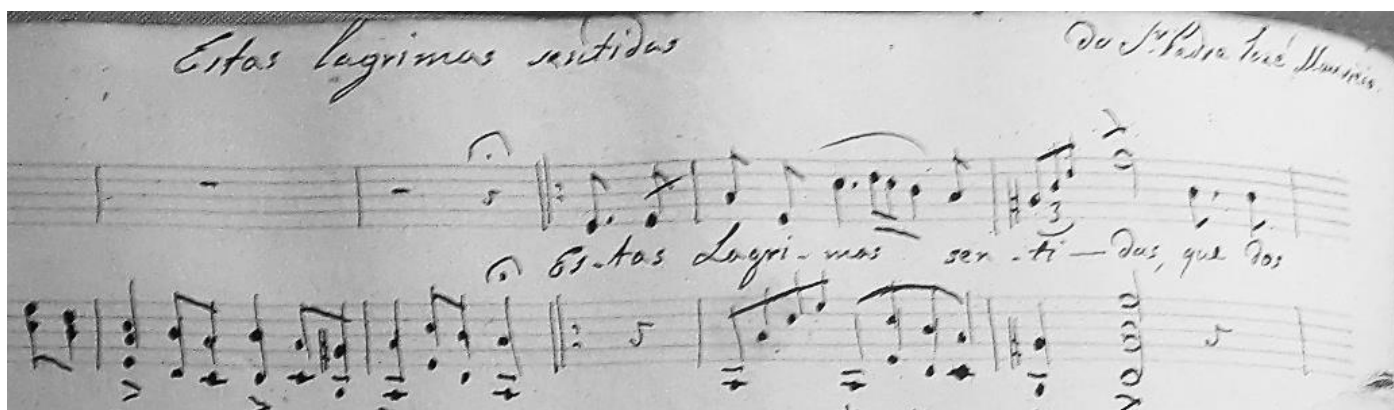 Estas lagrimas sentidas
Do Sr. Padre José Mauricio.
3
Es-tas Lagri-mas sen-ti-das, que dos